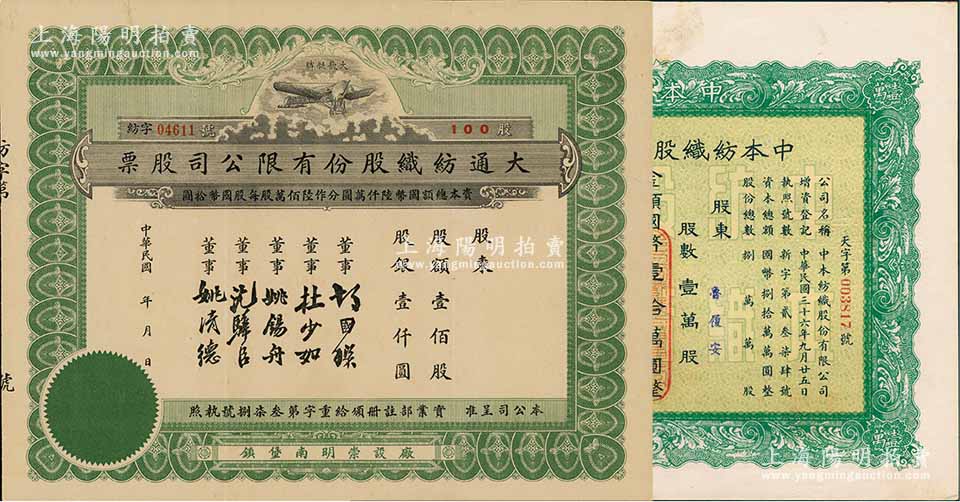 上海陽明拍賣
www.yangmingauction.com
紡字 04611 號
100 股
大通紡織股份有限公司股票
資本總額國幣陸仟萬圓分作陸佰萬股每股國幣拾圓
股東
股額壹佰股
股銀壹仟圓
董事 杜少如
董事 姚錫舟
董事
董事 姚清德
中華民國 年 月 日
本公司呈准 實業部註冊頒給重字第叁柒捌號執照
廠設崇明南堡鎮
紡字第
號
中本
中本紡織股
天字第 003817 號
公司名稱 中本紡織股份有限公司
增資登記 中華民國三十六年九月廿五日
執照號數 新字第貳叁柒肆號
資本總額 國幣捌拾萬萬圓整
股份總數 捌萬萬股
股東 魯復安
股數壹萬股
金額國幣壹拾萬圓整
上海陽明拍賣
www.yangmingauction.com
上海陽明拍賣
www.yangmingauction.com